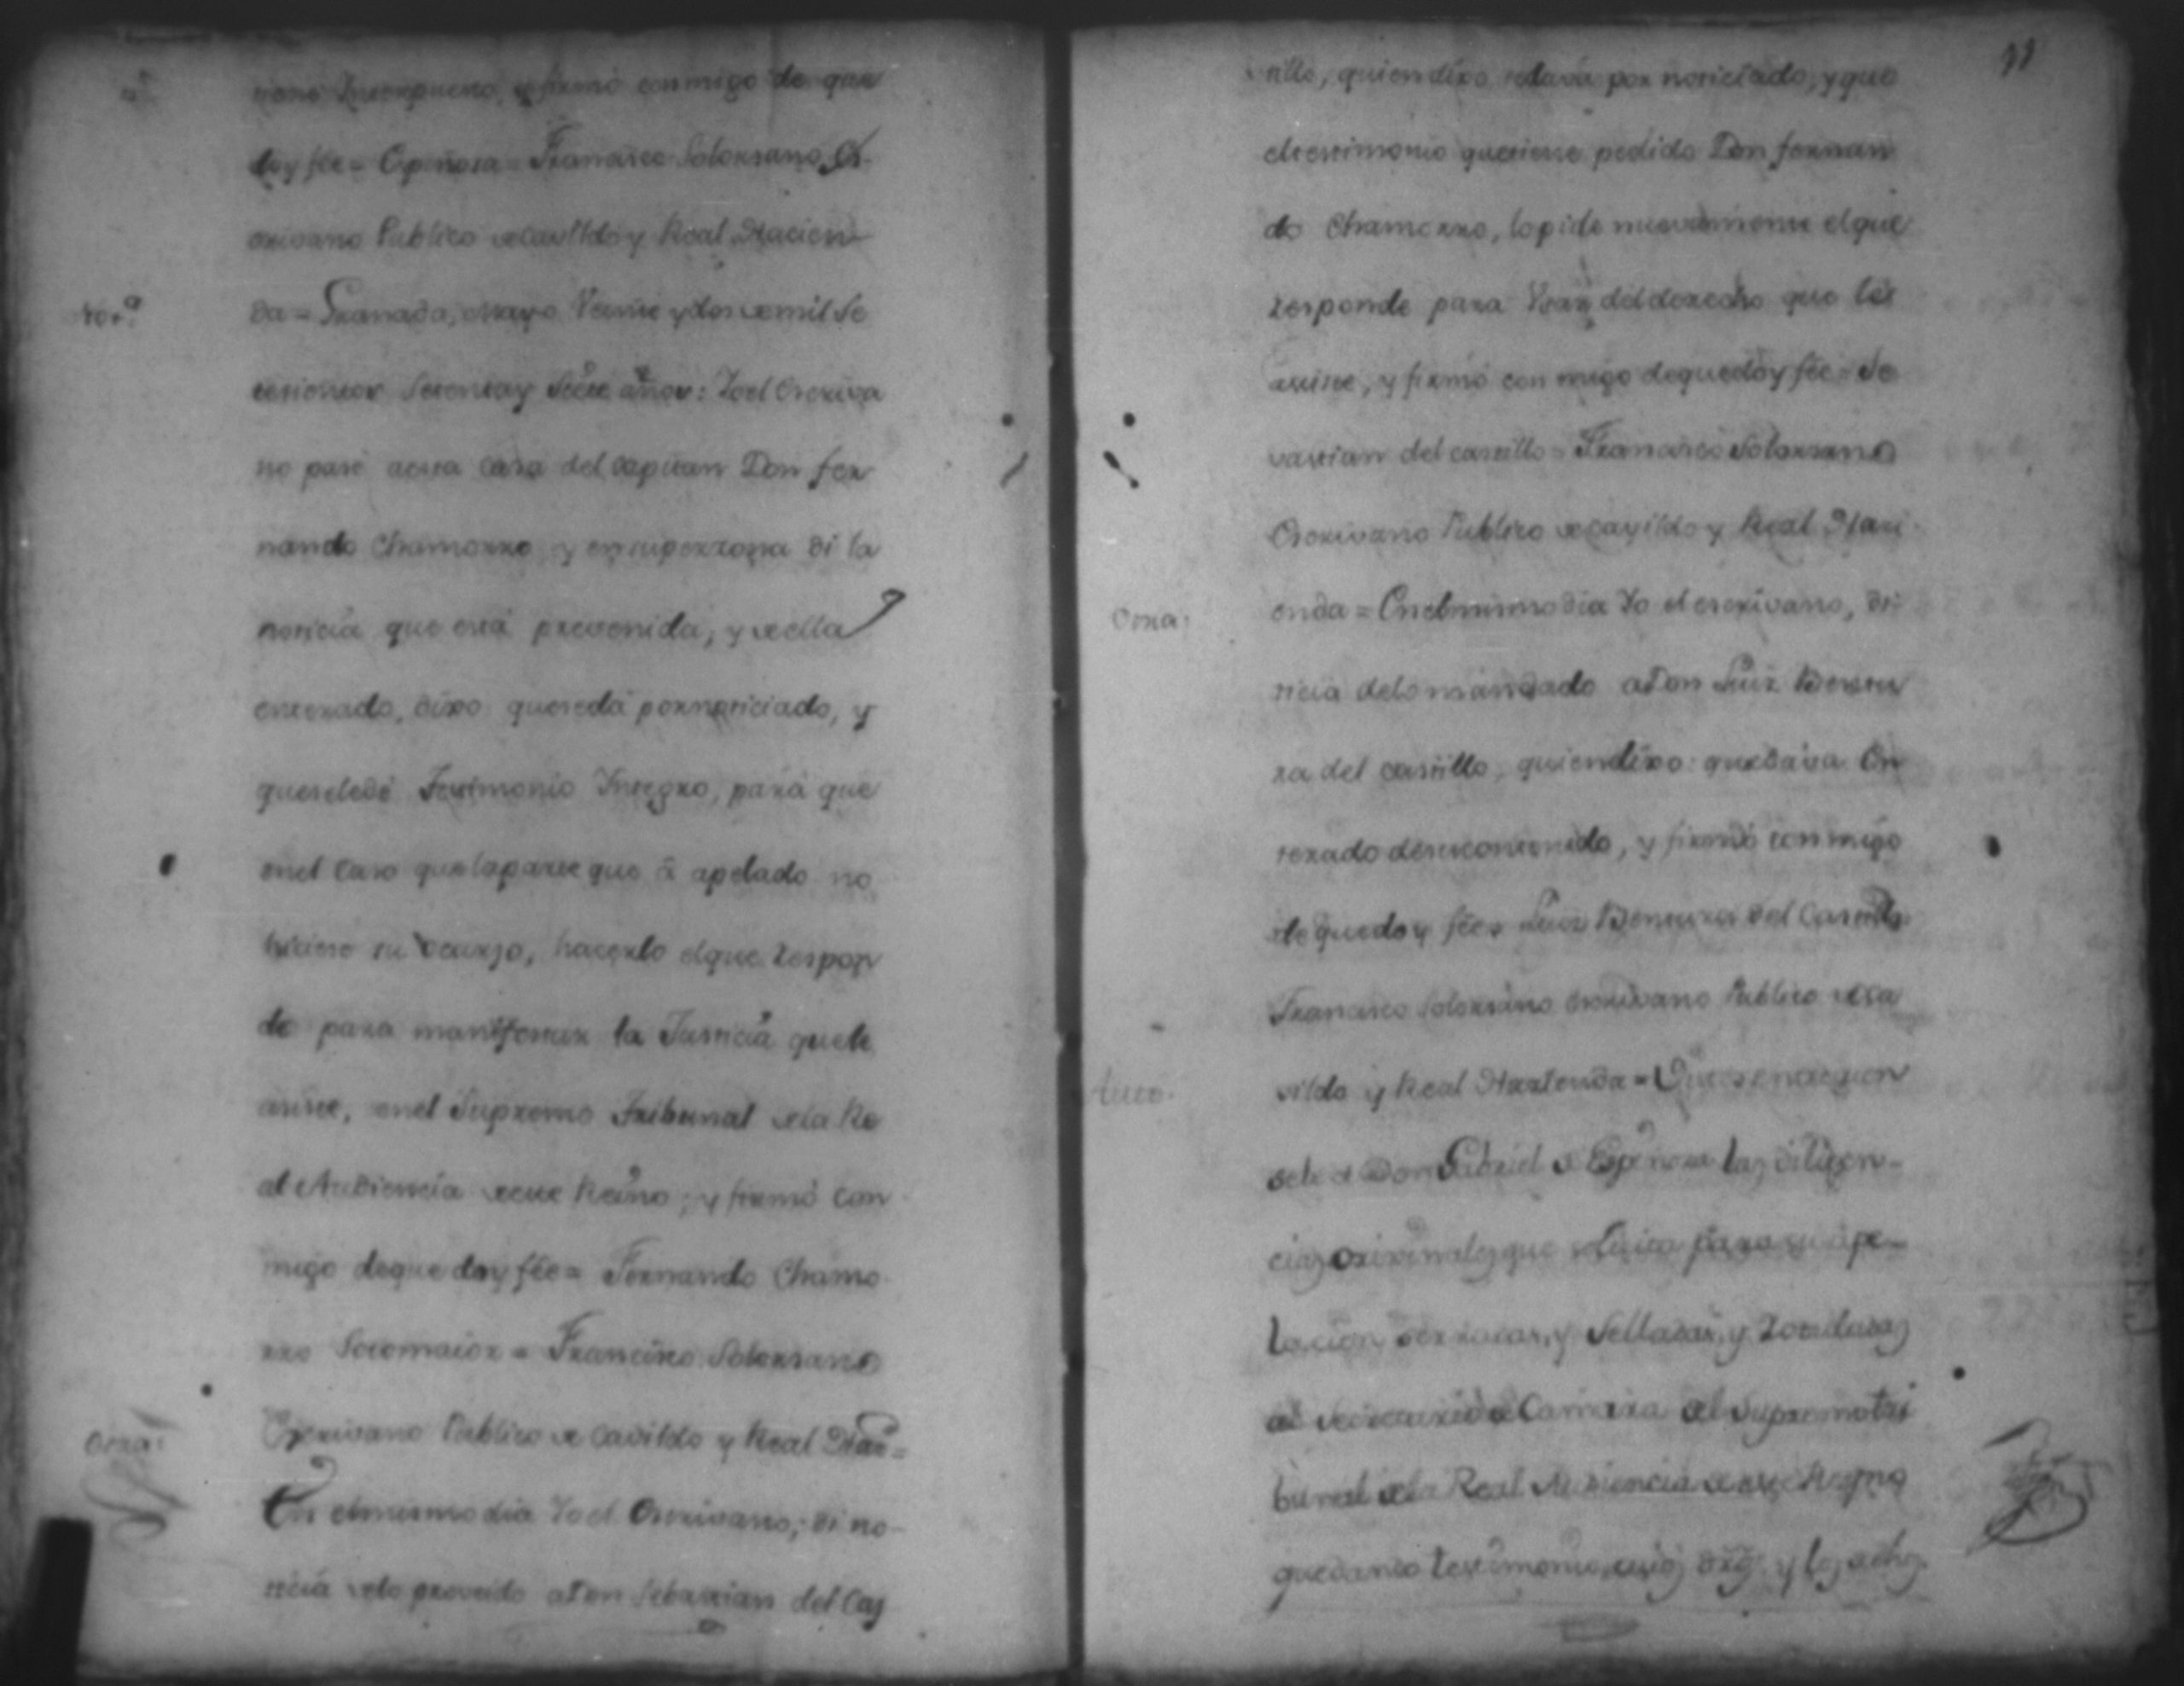 y firmó conmigo de que
doy fée = Espinosa = Francisco Solorsano Es-
crivano Publico de Cavildo y Real Hacien-
Not.ª
da = Granada, mayo Veinte y dos de mil se
tesientos setenta y siete años: Yo el Escriva
no pasé a esta casa del Capitan Don fer
nando Chamorro y en su persona di la
noticia que está prevenida, y de ella
enterado, dixo que se dá por noticiado, y
que se le dé Testimonio Integro, para que
en el Caso que la parte que â apelado no
hiciere su ocurso, hacerlo el que respon
de para manifestar la Justicia que le
asiste, en el Supremo Tribunal de la Re
al Audiencia de este Reino; y firmó con
migo de que doy fée = Fernando Chamo
rro Sotomaior = Francisco Solorsano
Escrivano Publico de Cavildo y Real Haz.ª =
Otra:
En el mismo dia Yo el Escrivano, di no-
ticia de lo proveido a Don Sebastian del Cas
tillo, quien dixo se dava por noticiado, y que
el testimonio que tiene pedido Don fernan
do Chamorro, lo pide nuevamente el que
responde para Vsar del derecho que les
asiste, y firmó con migo de que doy fée = Se
vastian del castillo = Francisco Solorsano
Escrivano Publico de Cavildo y Real Haci-
Otra:
enda = En el mismo dia Yo el escrivano, di no
ticia de lo mandado a Don Luis Bentu
ra del castillo, quien dixo: quedava En
terado de su contenido, y firmó con migo
de que doy fée = Luis Bentura del Castillo
Francisco Solorsano Escrivano Publico de Ca
Auto.
vildo y Real Hazienda = entreguen
sele a Don Gabriel de Espinosa las diligen-
cias orixinales que solicita para su ape-
lacion serradas, y Selladas, y rotuladas
al Secretario de Camara del Supremo tri
bunal de la Real Audiencia de este Reyno
quedando testimonio,